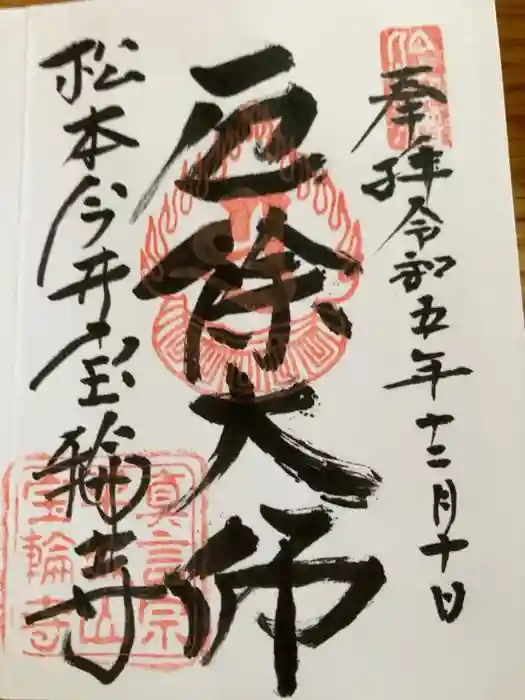 奉拝令和五年十二月十日
厄除大師
松本今井宝輪寺
真言宗
宝輪寺